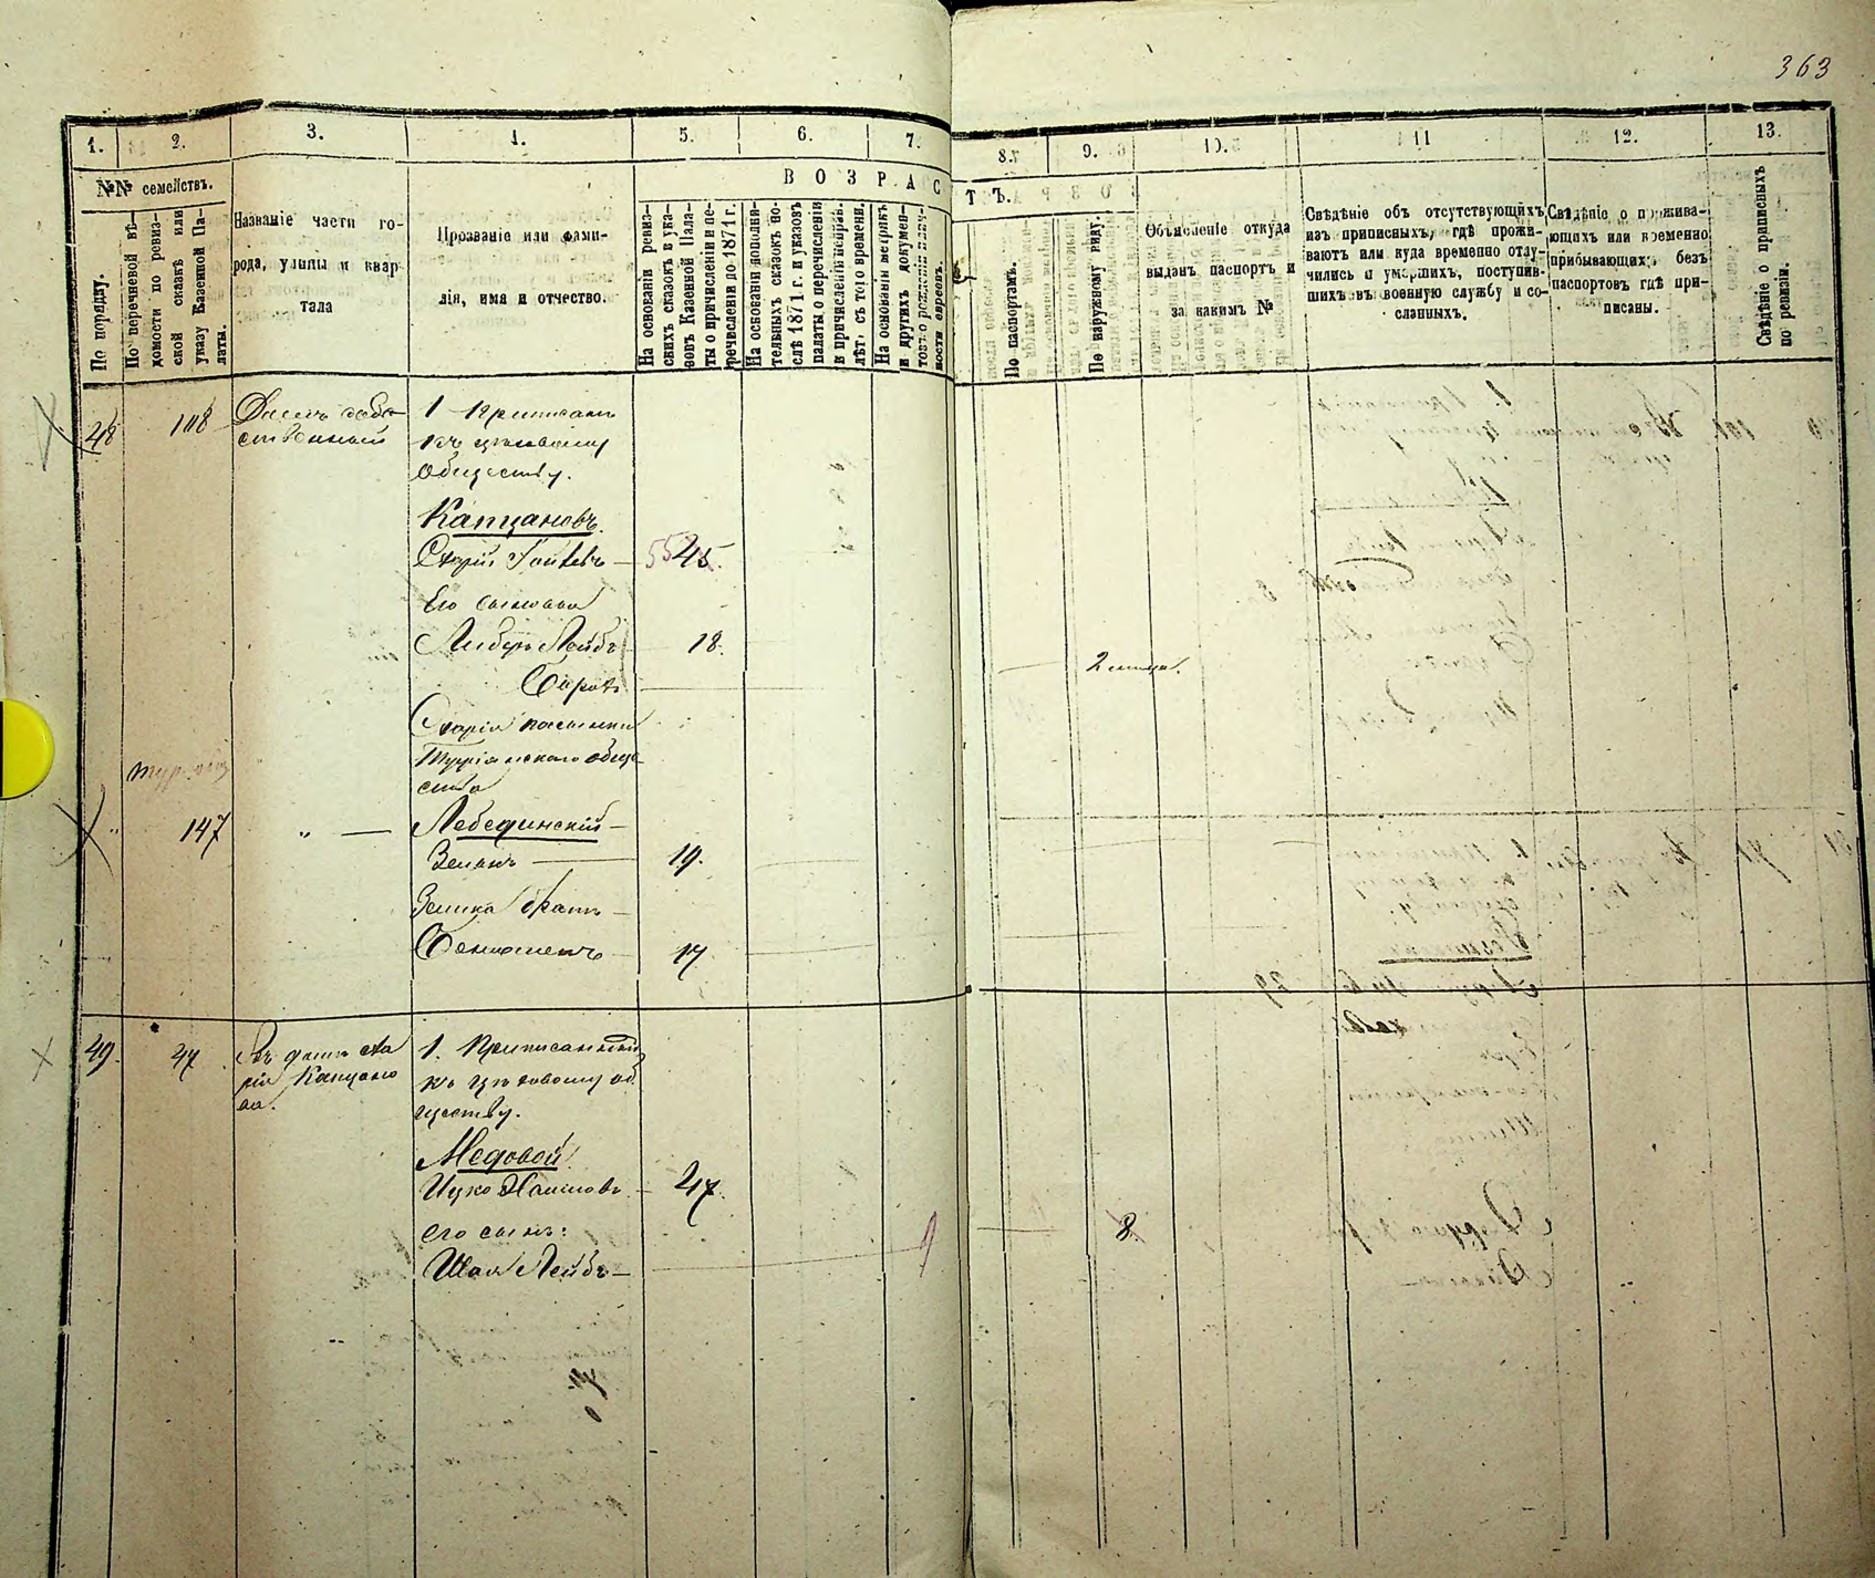 363
1.
2.
3.
4.
5.
6.
7.
8.
9.
10.
11
12.
13.
№№ семействъ.
ВОЗРАСТЪ.
По порядку.
По перечневой вѣ-
домости по ревиз-
ской сказкѣ или
указу Казенной Па-
латы.
Названіе части го-
рода, улицы и квар
тала
Прозваніе или фами-
лія, имя и отчество.
На основаніи ревиз-
скихъ сказокъ и ука-
зовъ Казенной Пала-
ты о причисленіи и пе-
речисленіи до 1871 г.
На основаніи дополни-
тельныхъ сказокъ по-
слѣ 1871 г. и указовъ
палаты о перечисленіи
и причисленіи исправ.
лѣт. съ того времени.
На основаніи метрикъ
и другихъ докумен-
товъ о
ности евреевъ.
По паспортамъ.
По наружному виду.
Объясненіе откуда
выданъ паспортъ и
за какимъ №
Свѣдѣніе объ отсутствующихъ
изъ приписныхъ, гдѣ прожи-
ваютъ или куда временно отлу-
чились и умершихъ, поступив-
шихъ въ военную службу и со-
сланныхъ.
Свѣдѣніе о прожива-
ющихъ или временно
прибывающихъ безъ
паспортовъ гдѣ при-
писаны.
Свѣдѣніе о приписныхъ
по ревизіи.
48
108
Домъ собс-
твенный
1 Приписанъ
къ цеховому
обществу.
Капцановъ.
55 45.
Его сыновья
Либеръ Лейбъ
18.
Борохъ
2 мѣсяца.
пасынки
Турійскаго обще
ства
147
" —
Лебединскій —
19.
братъ —
17
49.
47
Въ домѣ
Капцано
ва.
1. Приписанный
къ цеховому об
ществу.
Медовой
Ицко Хаимовъ —
47.
его сынъ:
Шая Лейбъ —
9
8.